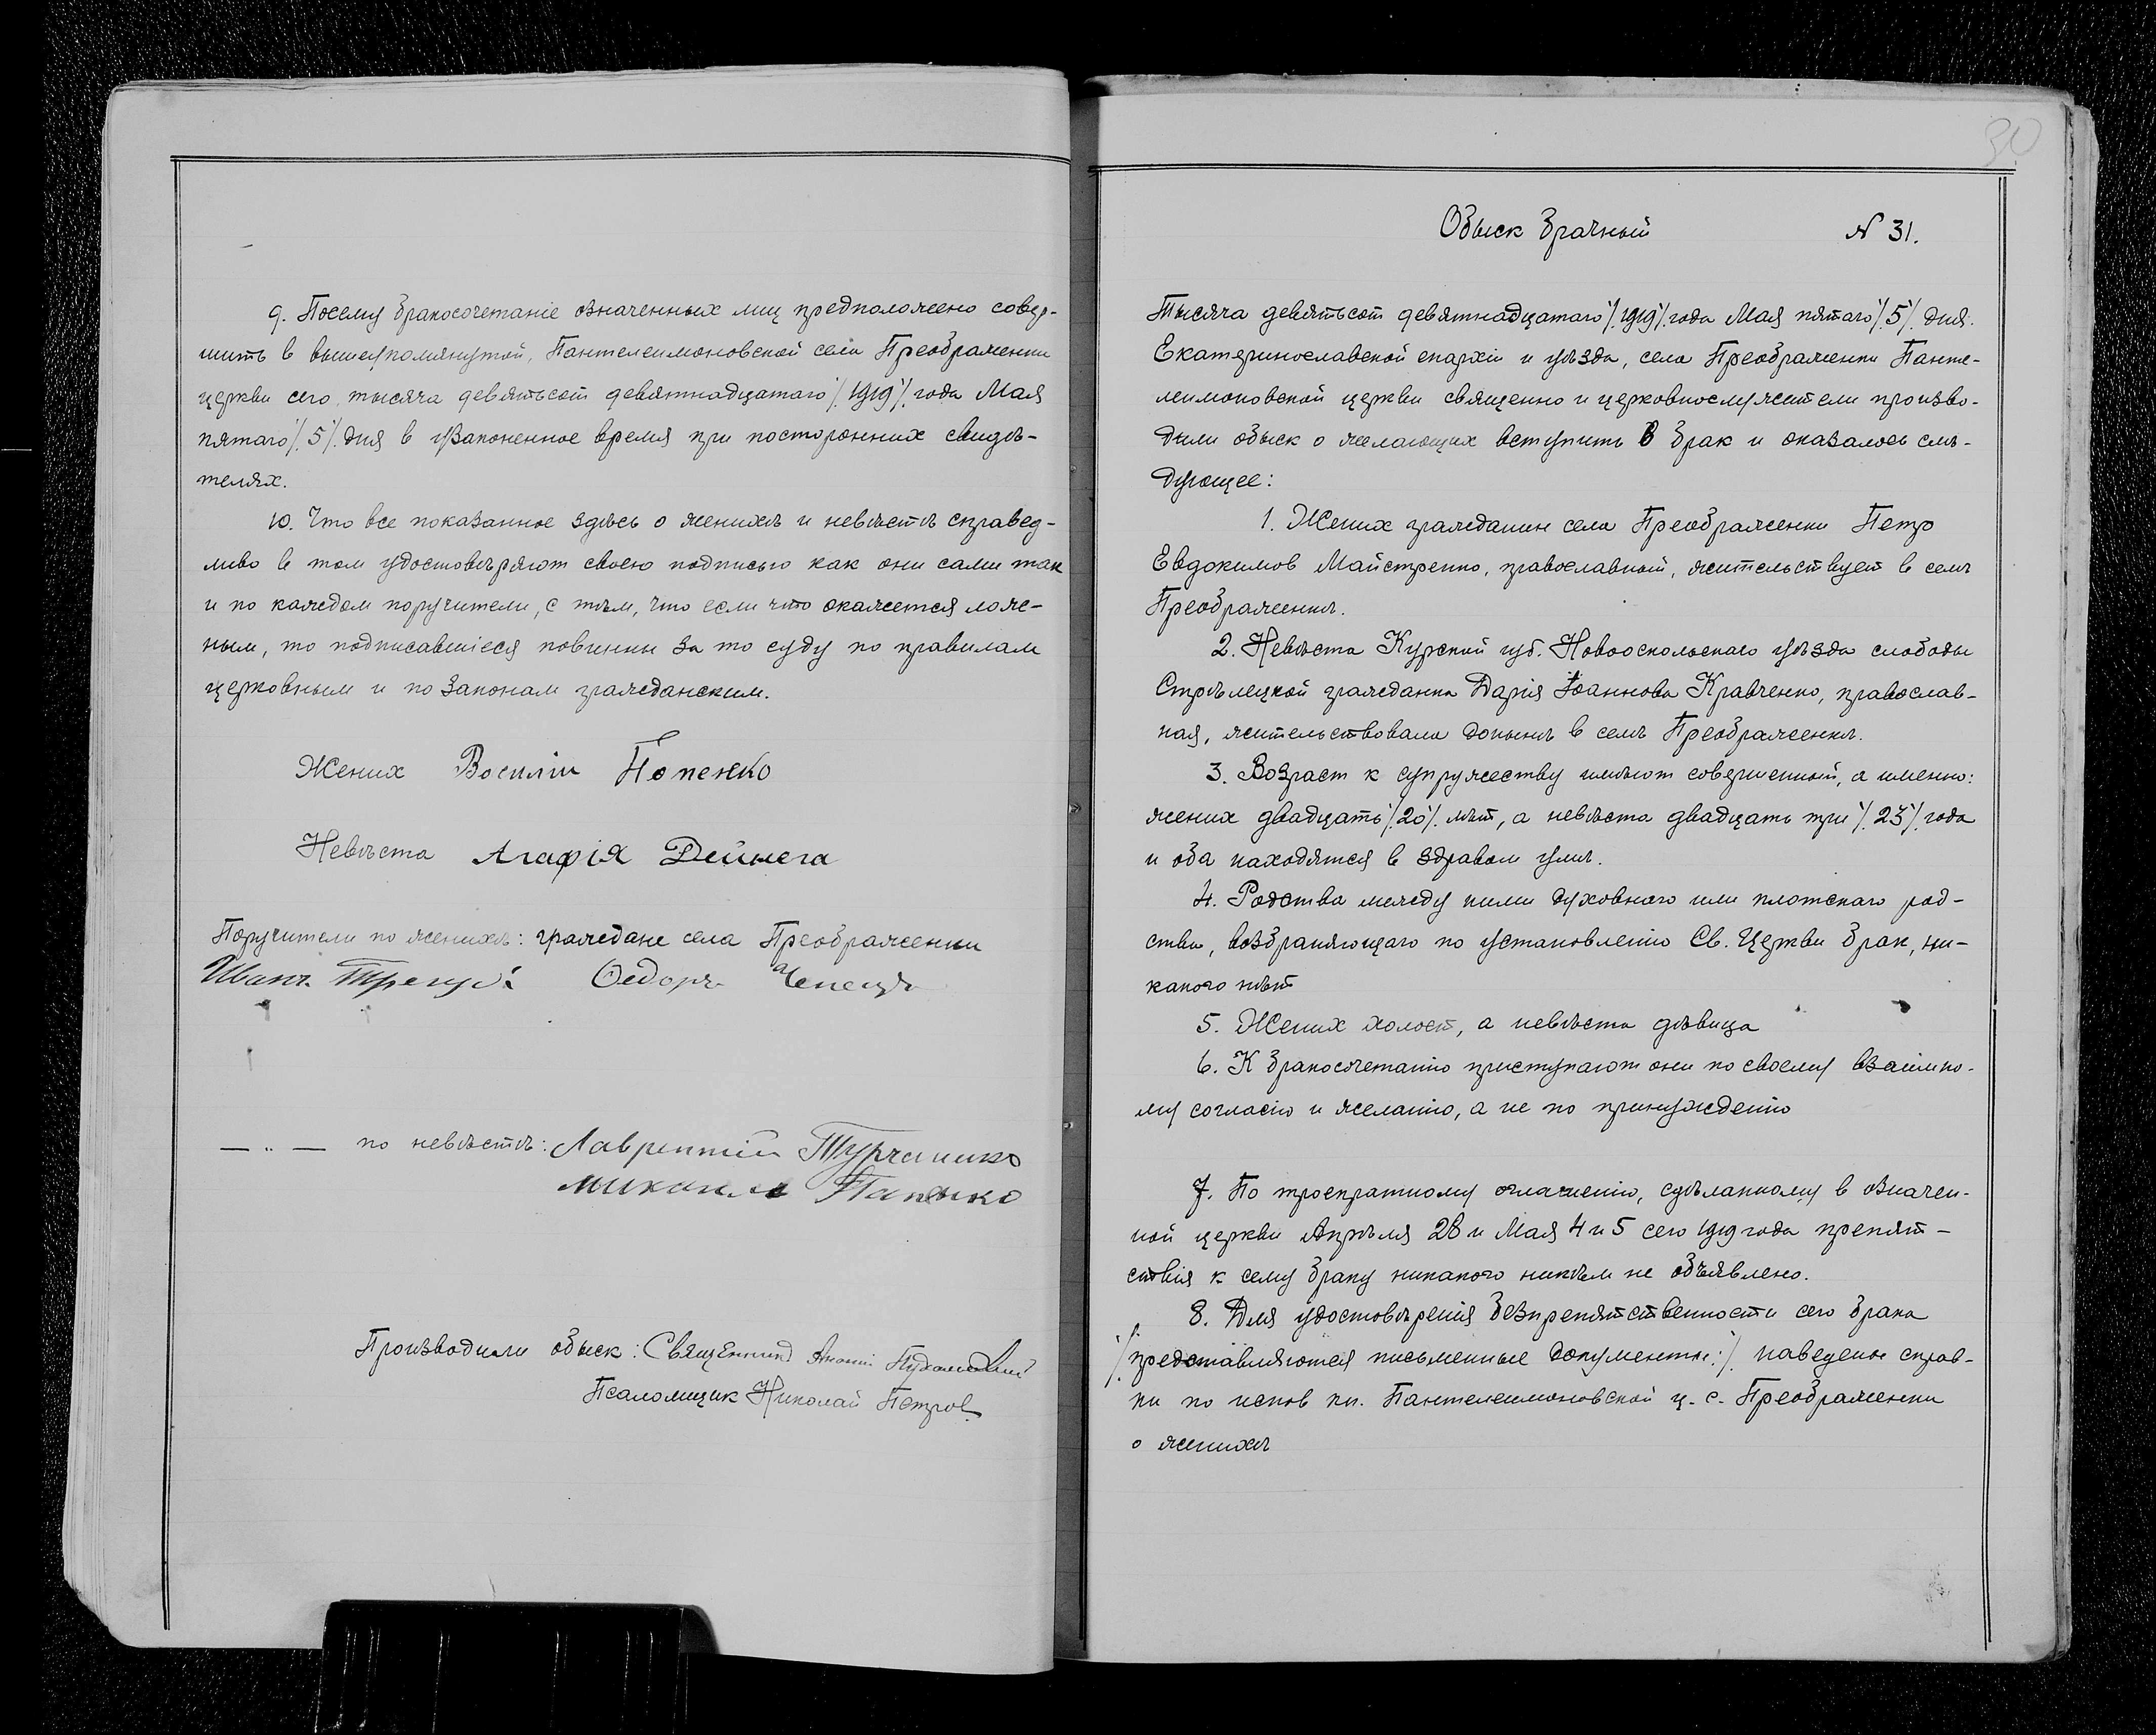 9. Посему бракосочетаніе означенных лиц предположено совер-
шить в вышеупомянутой, Пантелеимоновской села Преображенки
церкви сего, тысяча девятьсот девятнадцатаго /1919/ года Мая
пятаго /5/ дня в узаконенное время при посторонних свидѣ-
телях.
10. Что все показанное здѣсь о женихѣ и невѣстѣ справед-
ливо в том удостовѣряют своею подписью как они сами так
и по каждом поручители, с тѣм, что если что окажется лож-
ным, то подписавшіеся повинны за то суду по правилам
церковным и по законам гражданским.
Жених Василій Попенко
Невѣста Агафія Дейнега
Поручители по женихѣ: граждане села Преображенки
Иванъ Федоръ
— " — по невѣстѣ: Лаврентий
Производили обыск: Священник
Псаломщик Николай Петров
30
Обыск брачный N 31.
Тысяча девятьсот девятнадцатаго /1919/ года Мая пятаго /5/ дня.
Екатеринославской епархіи и уѣзда, села Преображенки Панте-
леимоновской церкви священно и церковнослужители произво-
дили обыск о желающих вступить в брак и оказалось слѣ-
дующее:
1. Жених гражданин села Преображенки Петр
Евдокимов Майстренко, православный, жительствует в селѣ
Преображенкѣ.
2. Невѣста Курской губ. Новооскольскаго уѣзда слободы
Стрѣлецкой гражданка Дарія Іоаннова Кравченко, православ-
ная, жительствовала донынѣ в селѣ Преображенкѣ.
3. Возраст к супружеству имѣют совершенный, а именно:
жених двадцать /20/ лѣт, а невѣста двадцать три /23/ года
и оба находятся в здравом умѣ.
4. Родства между ними духовного или плотскаго род-
ства, возбраняющаго по установленію Св. Церкви брак, ни-
какого нѣт
5. Жених холост, а невѣста дѣвица
6. К бракосочетанію приступают они по своему взаимно-
му согласію и желанію, а не по принужденію
7. По троекратному оглашенію, сдѣланному в означен-
ной церкви Апрѣля 28 и Мая 4 и 5 сего 1919 года препят-
ствія к сему браку никакого никѣм не объявлено.
8. Для удостовѣренія безпрепятственности сего брака
/представляются письменные документы:/ наведены справ-
ки по испов кн. Пантелеимоновской ц. с. Преображенки
о женихѣ